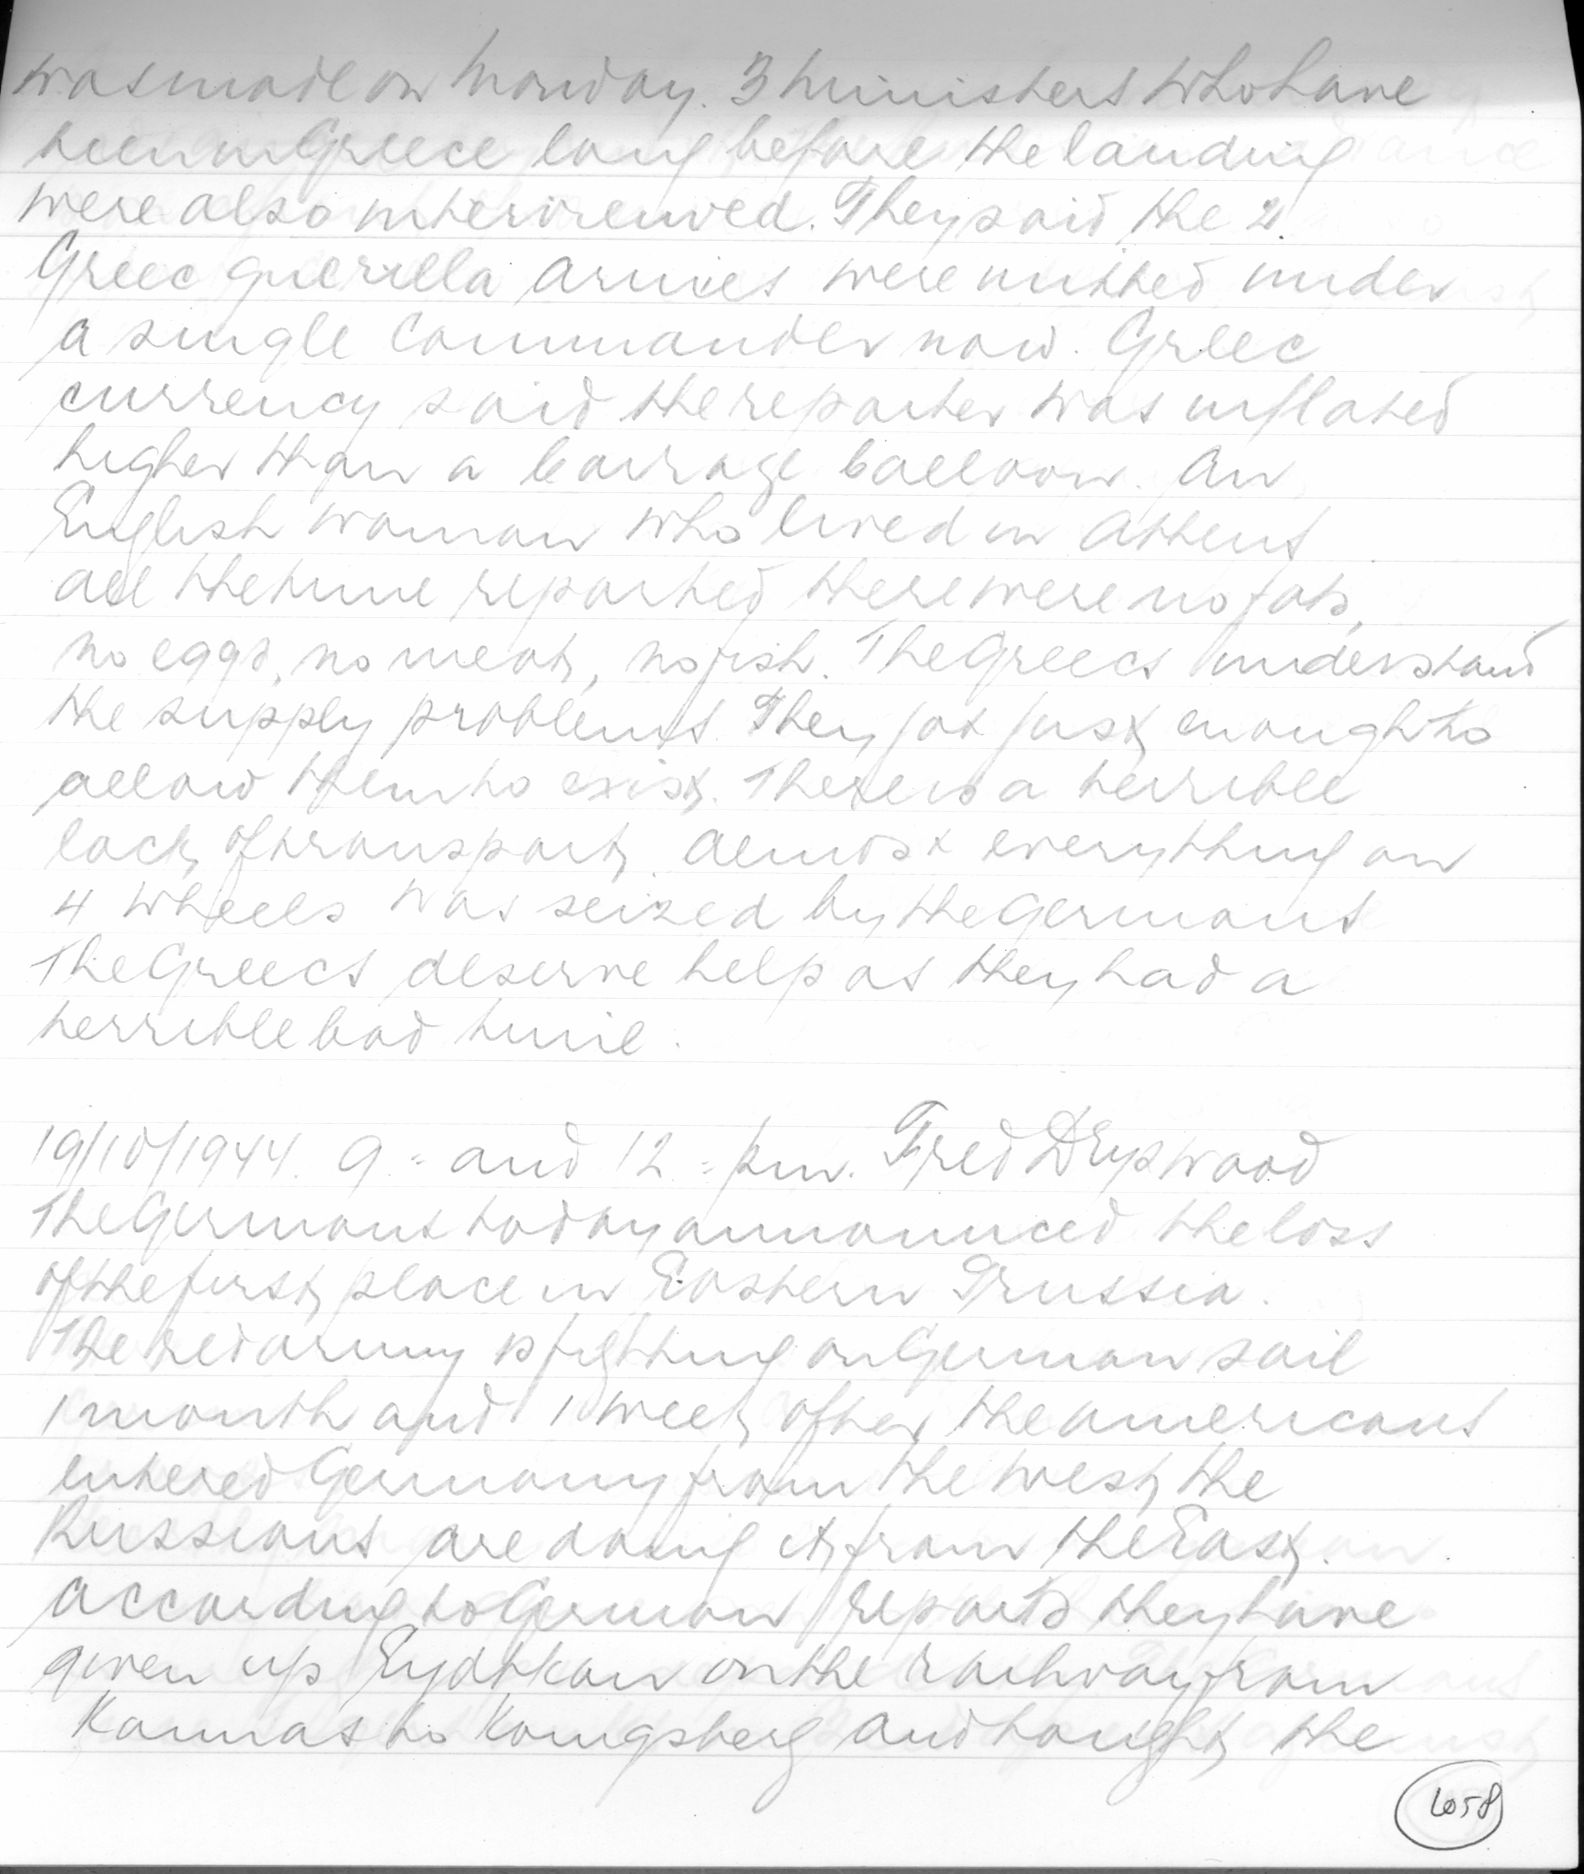 was made on Monday. 3 ministers who have
been in Greece long before the landing
were also interviewed. They said the 2
Greec guerilla armies were united under
a single Commander now. Greec
currency said the reporter was inflated
higher than a barrage balloon. An
English woman who lived in Athens
all the time reported there were no fats,
no eggs, no meat, no fish. The Greecs understand
the supply problems. They got just enough to
allow them to exist. There is a terrible
lack of transport. Almost everything on
4 wheels was seized by the Germans
The Greecs deserve help as they had a
terrible bad time.
19/10/1944. 9 = and 12 = pm. Fred
The Germans today announced the loss
of the first place in Eastern Prussia.
The red army is fighting on German soil
1 month and 1 week after the americans
entered Germany from the West, the
Russians are doing it from the East.
According to German reports they have
given up Eydtkau on the railway from
Kaunas to Konigsberg and tonight the
1058